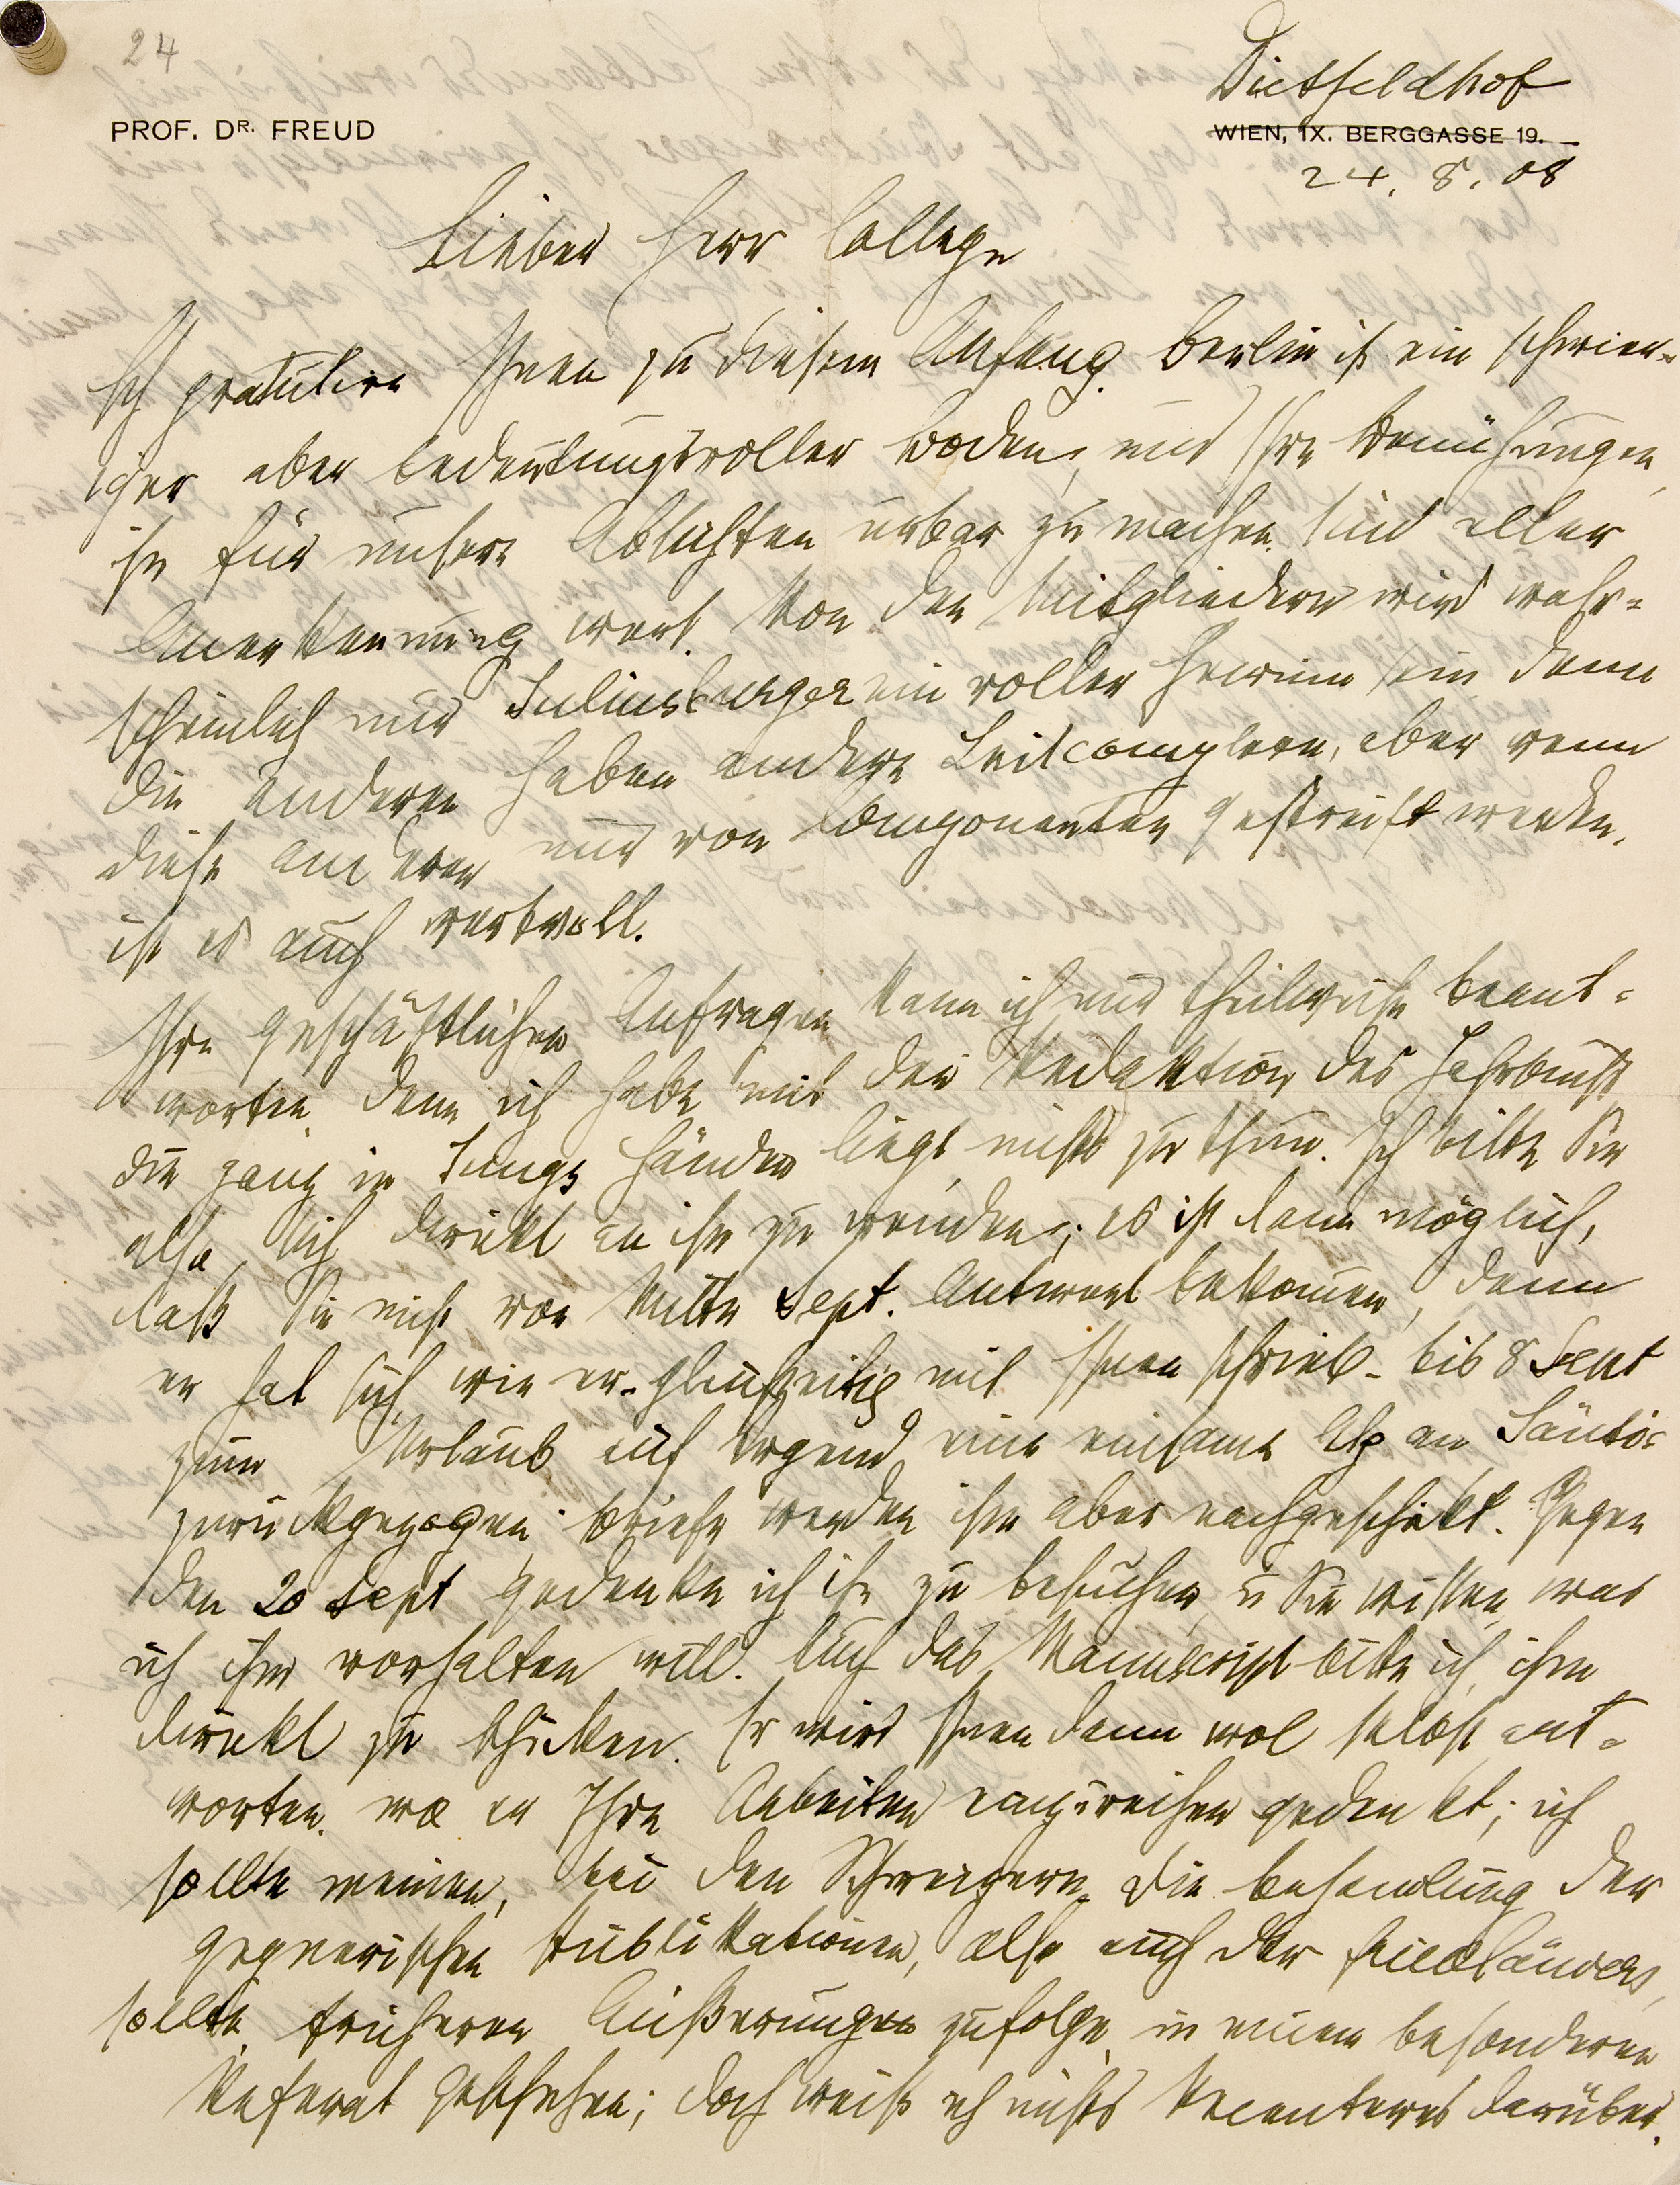 24
PROF. DR. FREUD
Dietfeldhof
WIEN, IX. BERGGASSE 19.
24. 8. 08
Lieber Herr College
Ich gratulire Ihnen zu diesem Anfang. Berlin ist ein schwier-
iger aber bedeutungsvoller Boden, und Ihre Bemühungen,
ihn für unsere Absichten urbar zu machen, sind aller
Anerkennung wert. Von den Mitgliedern wird wahr-
scheinlich nur Juliusburger ein voller Gewinn sein, denn
die anderen haben andere Leitcomplexe, aber wenn
diese anderen nur von Componenten gestreift werden,
ist es auch wertvoll.
Ihre geschäftlichen Anfragen kann ich nur theilweise beant-
worten, denn ich habe mit der Redaktion des Jahrbuchs,
die ganz in Jungs Händen liegt, nichts zu thun. Ich bitte Sie
also, sich direkt an ihn zu wenden; es ist dann möglich,
daß Sie nicht vor Mitte Sept. Antwort bekommen, denn
er hat sich, wie er – gleichzeitig mit Ihnen schrieb – bis 8 Sept
zum Urlaub auf irgend eine einsame Alp am Säntis
zurückgezogen. Briefe werden ihm aber nachgeschickt. Gegen
den 20 Sept gedenke ich ihn zu besuchen, u Sie wissen, was
ich ihm vorhalten will. Auch das Manuscript bitte ich, ihm
direkt zu schicken. Er wird Ihnen dann wol selbst ant-
worten, wo er Ihre Arbeiten einzureihen gedenkt; ich
sollte meinen, bei den Schweizern. Die Behandlung der
gegnerischen Publikationen, also auch der Friedländers,
sollte früheren Äußerungen zufolge in einem besonderen
Referat geschehen; doch weiß ich nichts Recenteres darüber.